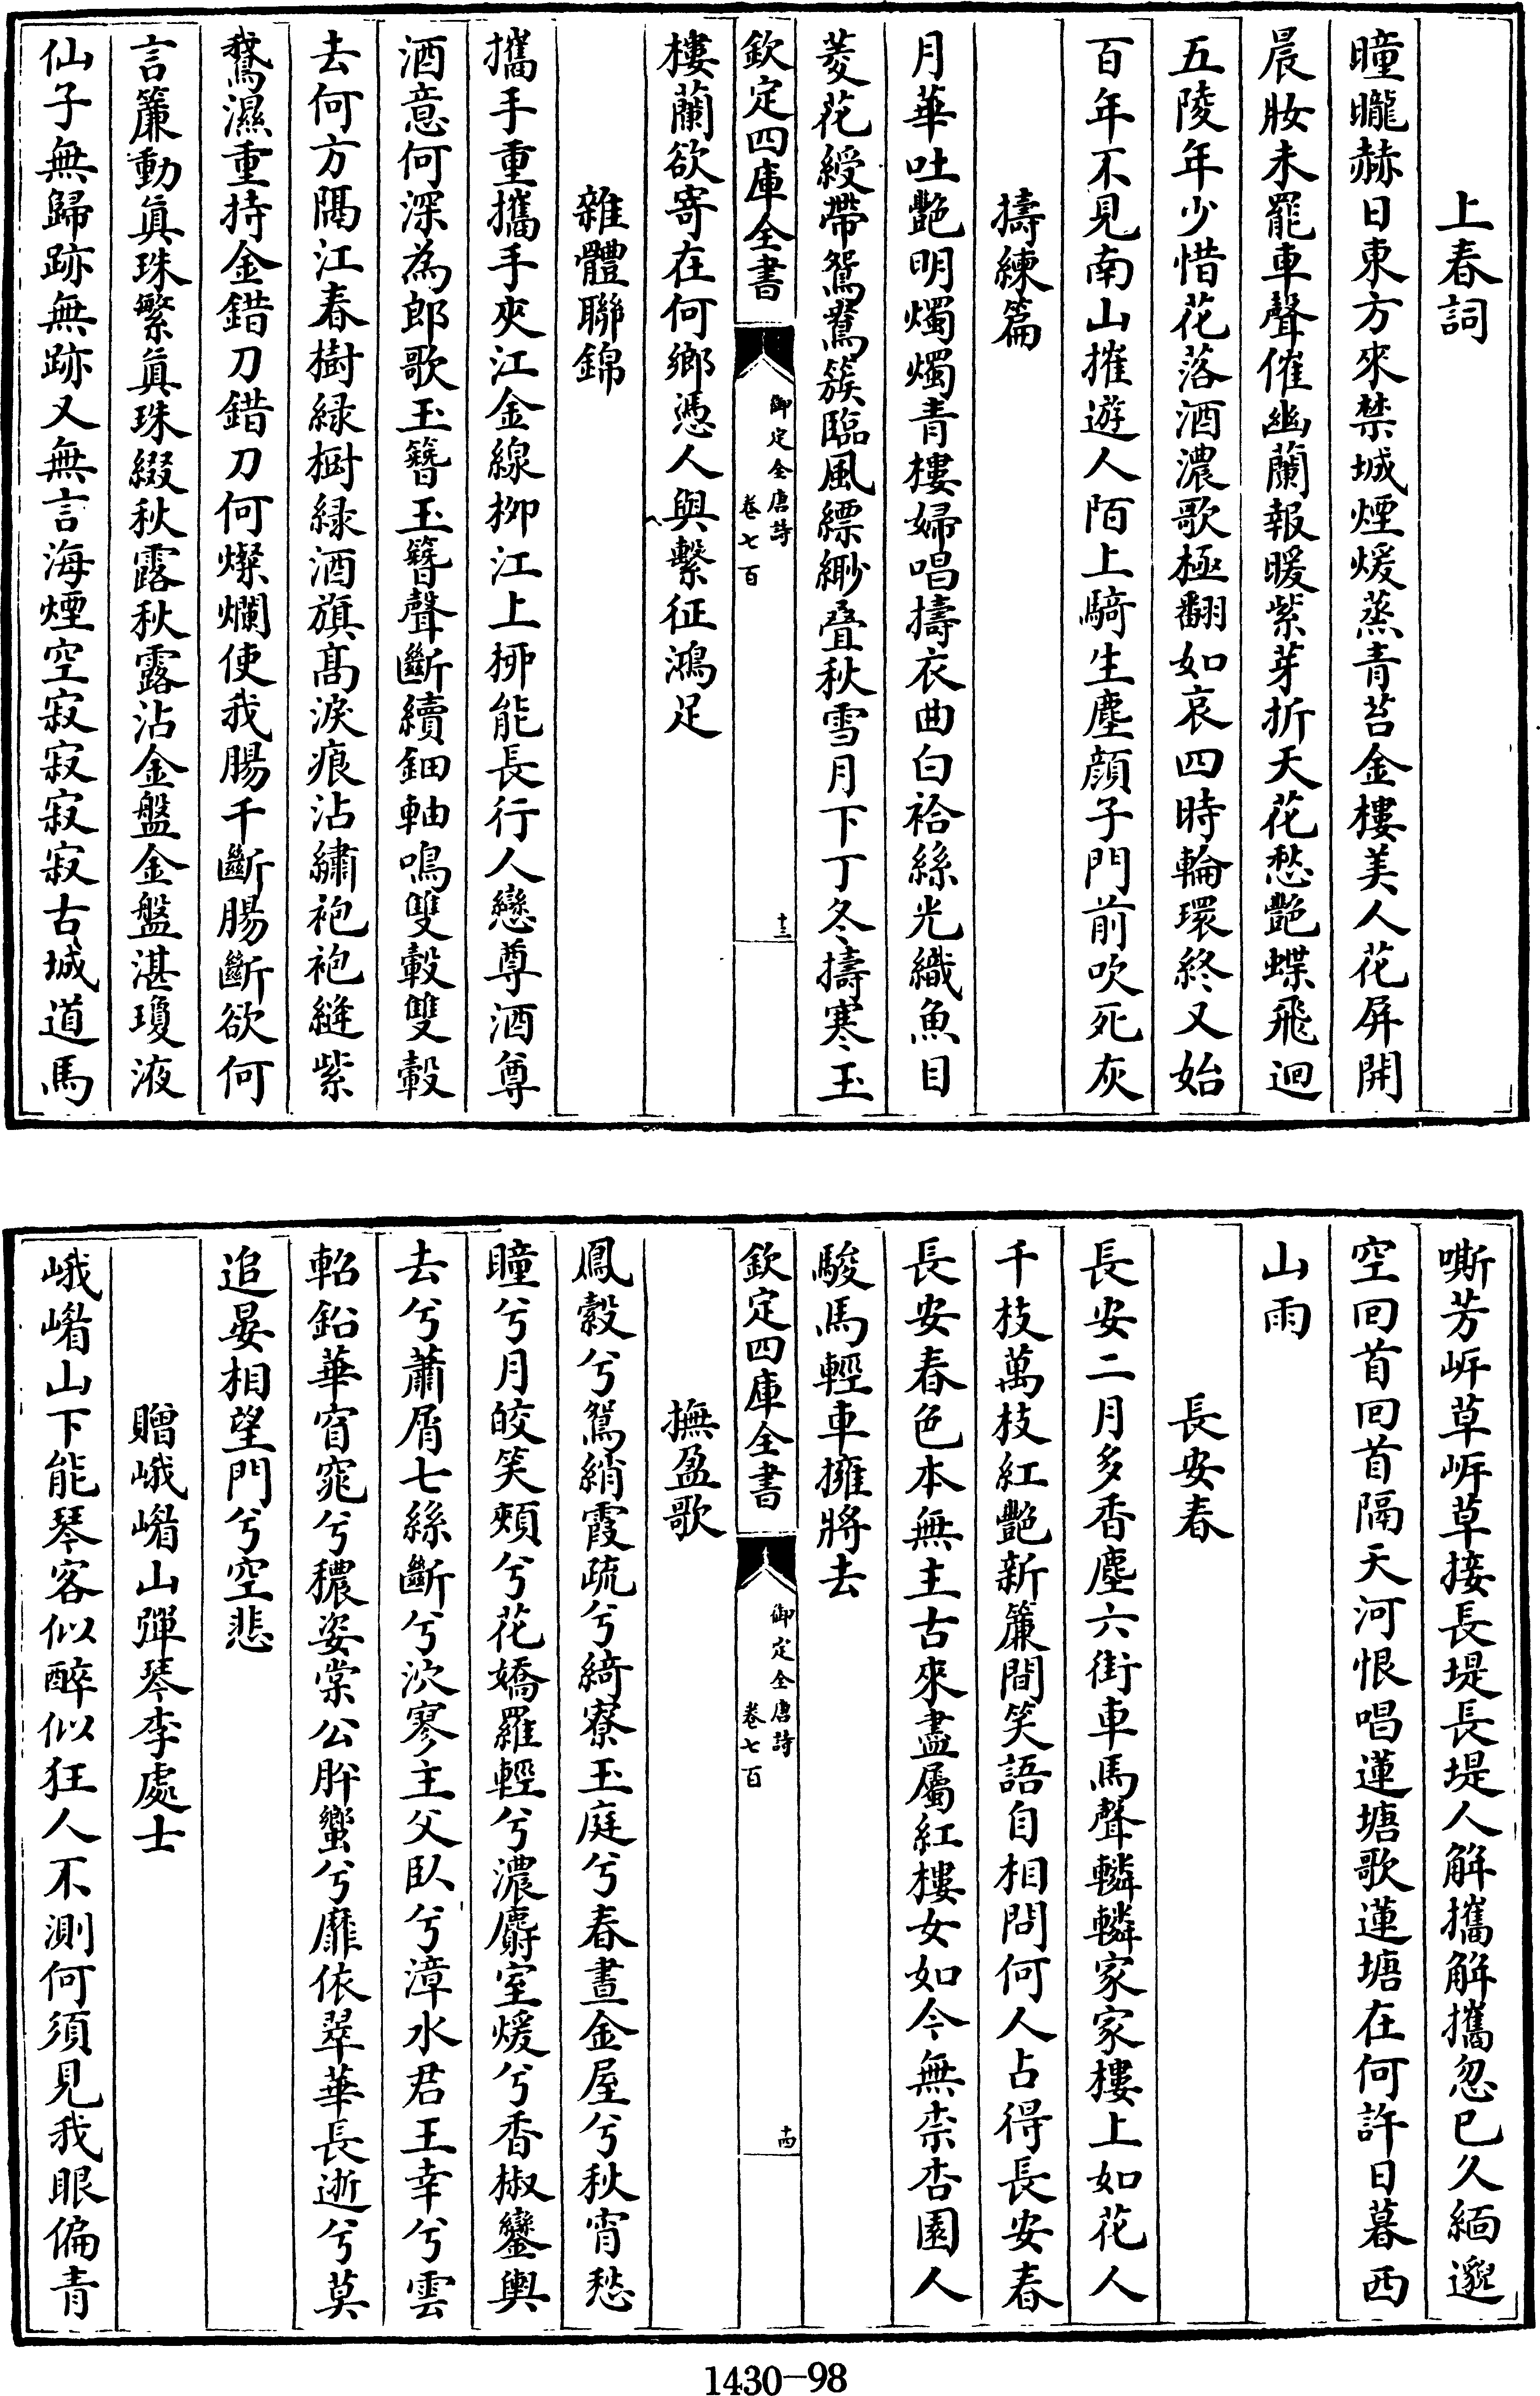 上春詞
曈曨赫日東方來禁城煙煖蒸青苔金樓美人花屏開
晨妝未罷車聲催幽蘭報暖紫芽折夭花愁艷蝶飛迴
五陵年少惜花落酒濃歌極翻如哀四時輪環終又始
百年不見南山摧遊人陌上騎生塵顔子門前吹死灰
擣練篇
月華吐艷明燭燭青樓婦唱擣衣曲白袷絲光織魚目
菱花綬帶鴛鴦簇臨風縹緲疊秋雪月下丁冬擣寒玉
欽定四庫全書
御定全唐詩
卷七百
十三
樓蘭欲寄在何鄉憑人與繫征鴻足
雜體聯錦
攜手重攜手夾江金線柳江上柳能長行人戀尊酒尊
酒意何深為郎歌玉簪玉簪聲斷續鈿軸鳴雙轂雙轂
去何方隔江春樹緑樹緑酒旗髙淚痕沾繡袍袍縫紫
鵞濕重持金錯刀錯刀何燦爛使我腸千斷腸斷欲何
言簾動眞珠繁眞珠綴秋露秋露沾金盤金盤湛瓊液
仙子無歸跡無跡又無言海煙空寂寂寂寂古城道馬
嘶芳岸草岸草接長堤長堤人解攜解攜忽已久緬邈
空回首回首隔天河恨唱蓮塘歌蓮塘在何許日暮西
山雨
長安春
長安二月多香塵六街車馬聲轔轔家家樓上如花人
千枝萬枝紅艷新簾間笑語自相問何人占得長安春
長安春色本無主古來盡屬紅樓女如今無柰杏園人
駿馬輕車擁將去
欽定四庫全書
御定全唐詩
卷七百
十四
撫盈歌
鳳縠兮鴛綃霞疏兮綺寮玉庭兮春晝金屋兮秋宵愁
瞳兮月皎笑頰兮花嬌羅輕兮濃麝室煖兮香椒鑾輿
去兮蕭屑七絲斷兮泬寥主父臥兮漳水君王幸兮雲
軺鉛華窅窕兮穠姿棠公肸蠁兮靡依翠華長逝兮莫
追晏相望門兮空悲
贈峨嵋山彈琴李處士
峨嵋山下能琴客似醉似狂人不測何須見我眼偏青
1430-98